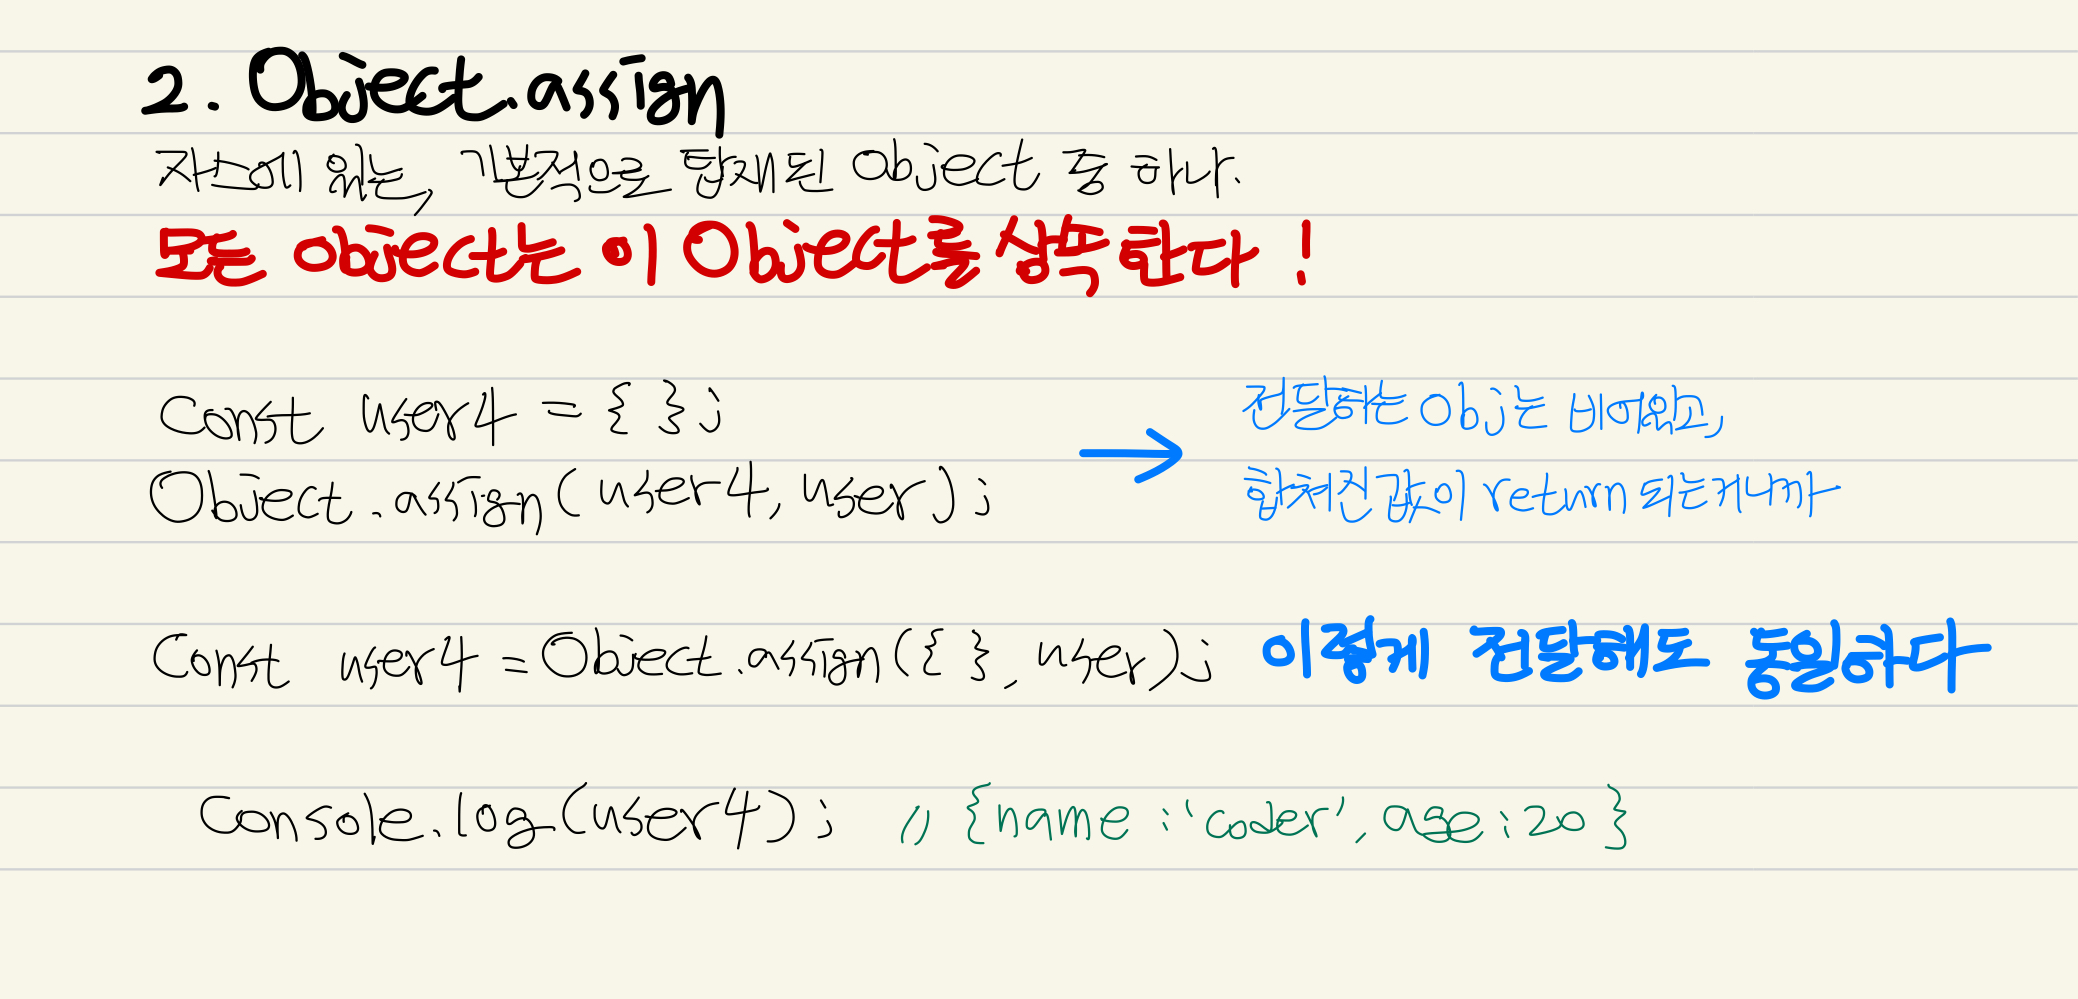 2. Object.assign
자스에 있는, 기본적으로 탑재된 Object 중 하나.
모든 object는 이 Object를 상속한다!
Const user4 = { };
Object.assign(user4, user);
→ 전달하는 Obj는 비어있고,
합쳐진 값이 return 되는거니까
Const user4 = Object.assign({ }, user); 이렇게 전달해도 동일하다
Console.log(user4); // {name : 'coder', age : 20 }